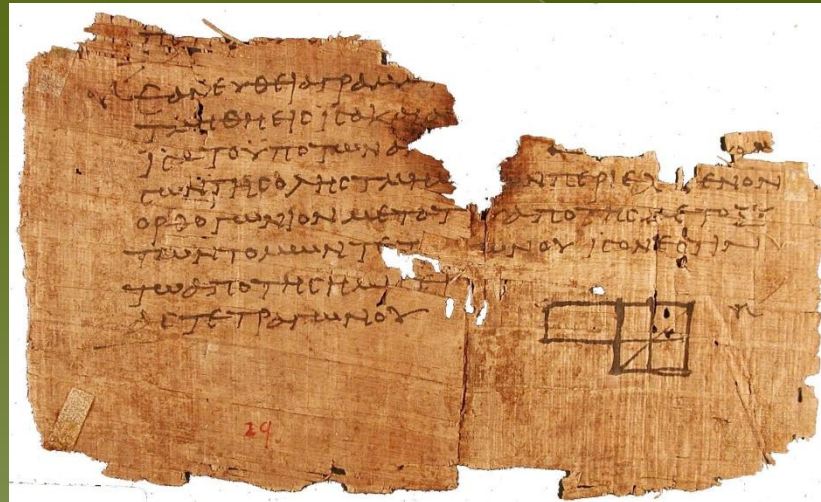 ΕΑΝ ΕΥΘΕΙΑ ΓΡΑΜ
ΤΜΗΘΗ ΕΙϹ ΙϹΑ ΚΑΙ
ΙϹΑ ΤΟ ΥΠΟ ΤΩΝ Α
ϹΩΝ ΤΗϹ ΟΛΗϹ ΤΜΗ ΩΝ ΠΕΡΙΕΧ ΜΕΝΟΝ
ΟΡΘΟΓΩΝΙΟΝ ΜΕΤΑ Τ ΑΠΟ ΤΗϹ ΜΕΤΟΞΥ
ΤΩΝ ΤΟΜΩΝ ΤΕΤ ΩΝΟΥ ΙϹΟΝ ΕϹΤΙΝ
ΤΩ ΑΠΟ ΤΗϹ ΗΜΙϹΕΙ
ΑϹ ΤΕΤΡΑΓΩΝΟΥ
29